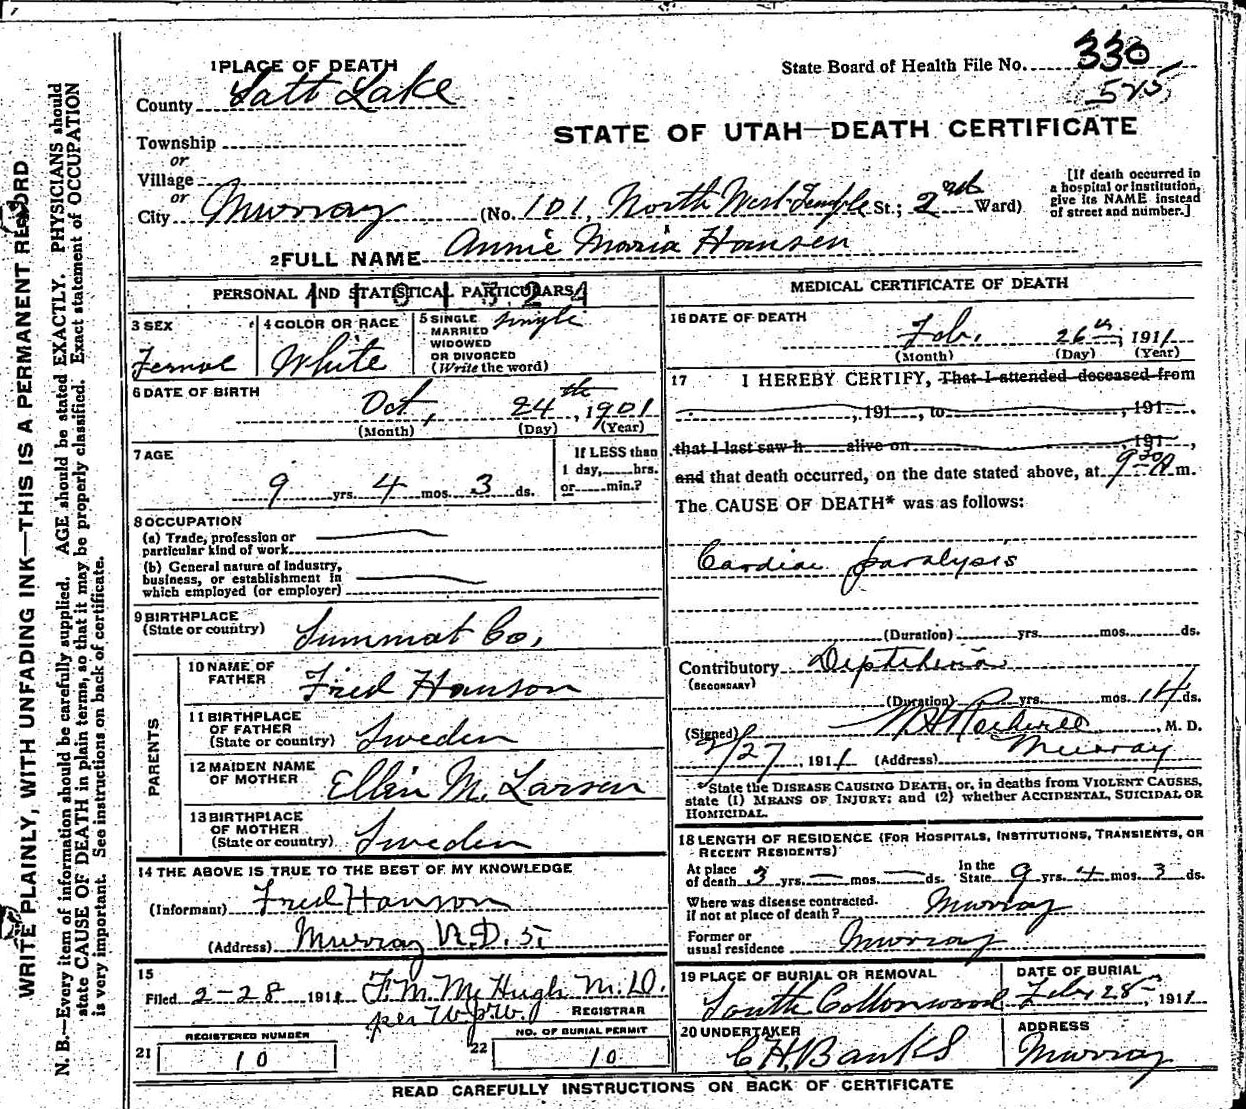 330
State Board of Health File No.
525
1 PLACE OF DEATH
County Salt Lake
STATE OF UTAH—DEATH CERTIFICATE
Township
or
Village
or
City Murray (No. 101, North West Temple St.; 2nd Ward)
[If death occurred in a hospital or institution, give its NAME instead of street and number.]
2 FULL NAME Annie Maria Hansen
PERSONAL AND STATISTICAL PARTICULARS
3 SEX
Femal
4 COLOR OR RACE
White
5 SINGLE
MARRIED
WIDOWED
OR DIVORCED
(Write the word)
Single
6 DATE OF BIRTH
Oct, 24th, 1901
(Month) (Day) (Year)
7 AGE
9 yrs. 4 mos. 3 ds.
If LESS than
1 day, hrs.
or min.?
8 OCCUPATION
(a) Trade, profession or
particular kind of work
(b) General nature of industry,
business, or establishment in
which employed (or employer)
9 BIRTHPLACE
(State or country) Summat Co,
PARENTS
10 NAME OF
FATHER Fred Hanson
11 BIRTHPLACE
OF FATHER
(State or country) Sweden
12 MAIDEN NAME
OF MOTHER Ellin M. Larsen
13 BIRTHPLACE
OF MOTHER
(State or country) Sweden
14 THE ABOVE IS TRUE TO THE BEST OF MY KNOWLEDGE
(Informant) Fred Hanson
(Address) Murray R.D. 5,
15
Filed 2-28, 1911 F. M. McHugh M.D.
per REGISTRAR
REGISTERED NUMBER
21 10
NO. OF BURIAL PERMIT
22 10
MEDICAL CERTIFICATE OF DEATH
16 DATE OF DEATH
Feb. 26th, 1911
(Month) (Day) (Year)
17 I HEREBY CERTIFY, That I attended deceased from
, 191 , to , 191 ,
that I last saw h alive on , 191 ,
and that death occurred, on the date stated above, at 9:30 m.
The CAUSE OF DEATH* was as follows:
Cardiac paralysis
(Duration) yrs. mos. ds.
Contributory Diptheria
(SECONDARY)
(Duration) yrs. mos. 14 ds.
(Signed) M. D.
2/27, 1911 (Address) Murray
*State the DISEASE CAUSING DEATH, or, in deaths from VIOLENT CAUSES,
state (1) MEANS OF INJURY; and (2) whether ACCIDENTAL, SUICIDAL OR
HOMICIDAL.
18 LENGTH OF RESIDENCE (FOR HOSPITALS, INSTITUTIONS, TRANSIENTS, OR
RECENT RESIDENTS)
At place of death 3 yrs. mos. ds. In the State 9 yrs. 4 mos. 3 ds.
Where was disease contracted
if not at place of death? Murray
Former or
usual residence Murray
19 PLACE OF BURIAL OR REMOVAL
South Cottonwood
DATE OF BURIAL
Feb 28, 1911
20 UNDERTAKER
C. H. Banks
ADDRESS
Murray
READ CAREFULLY INSTRUCTIONS ON BACK OF CERTIFICATE
WRITE PLAINLY, WITH UNFADING INK—THIS IS A PERMANENT RECORD
N. B.—Every item of information should be carefully supplied. AGE should be stated EXACTLY. PHYSICIANS should
state CAUSE OF DEATH in plain terms, so that it may be properly classified. Exact statement of OCCUPATION
is very important. See instructions on back of certificate.